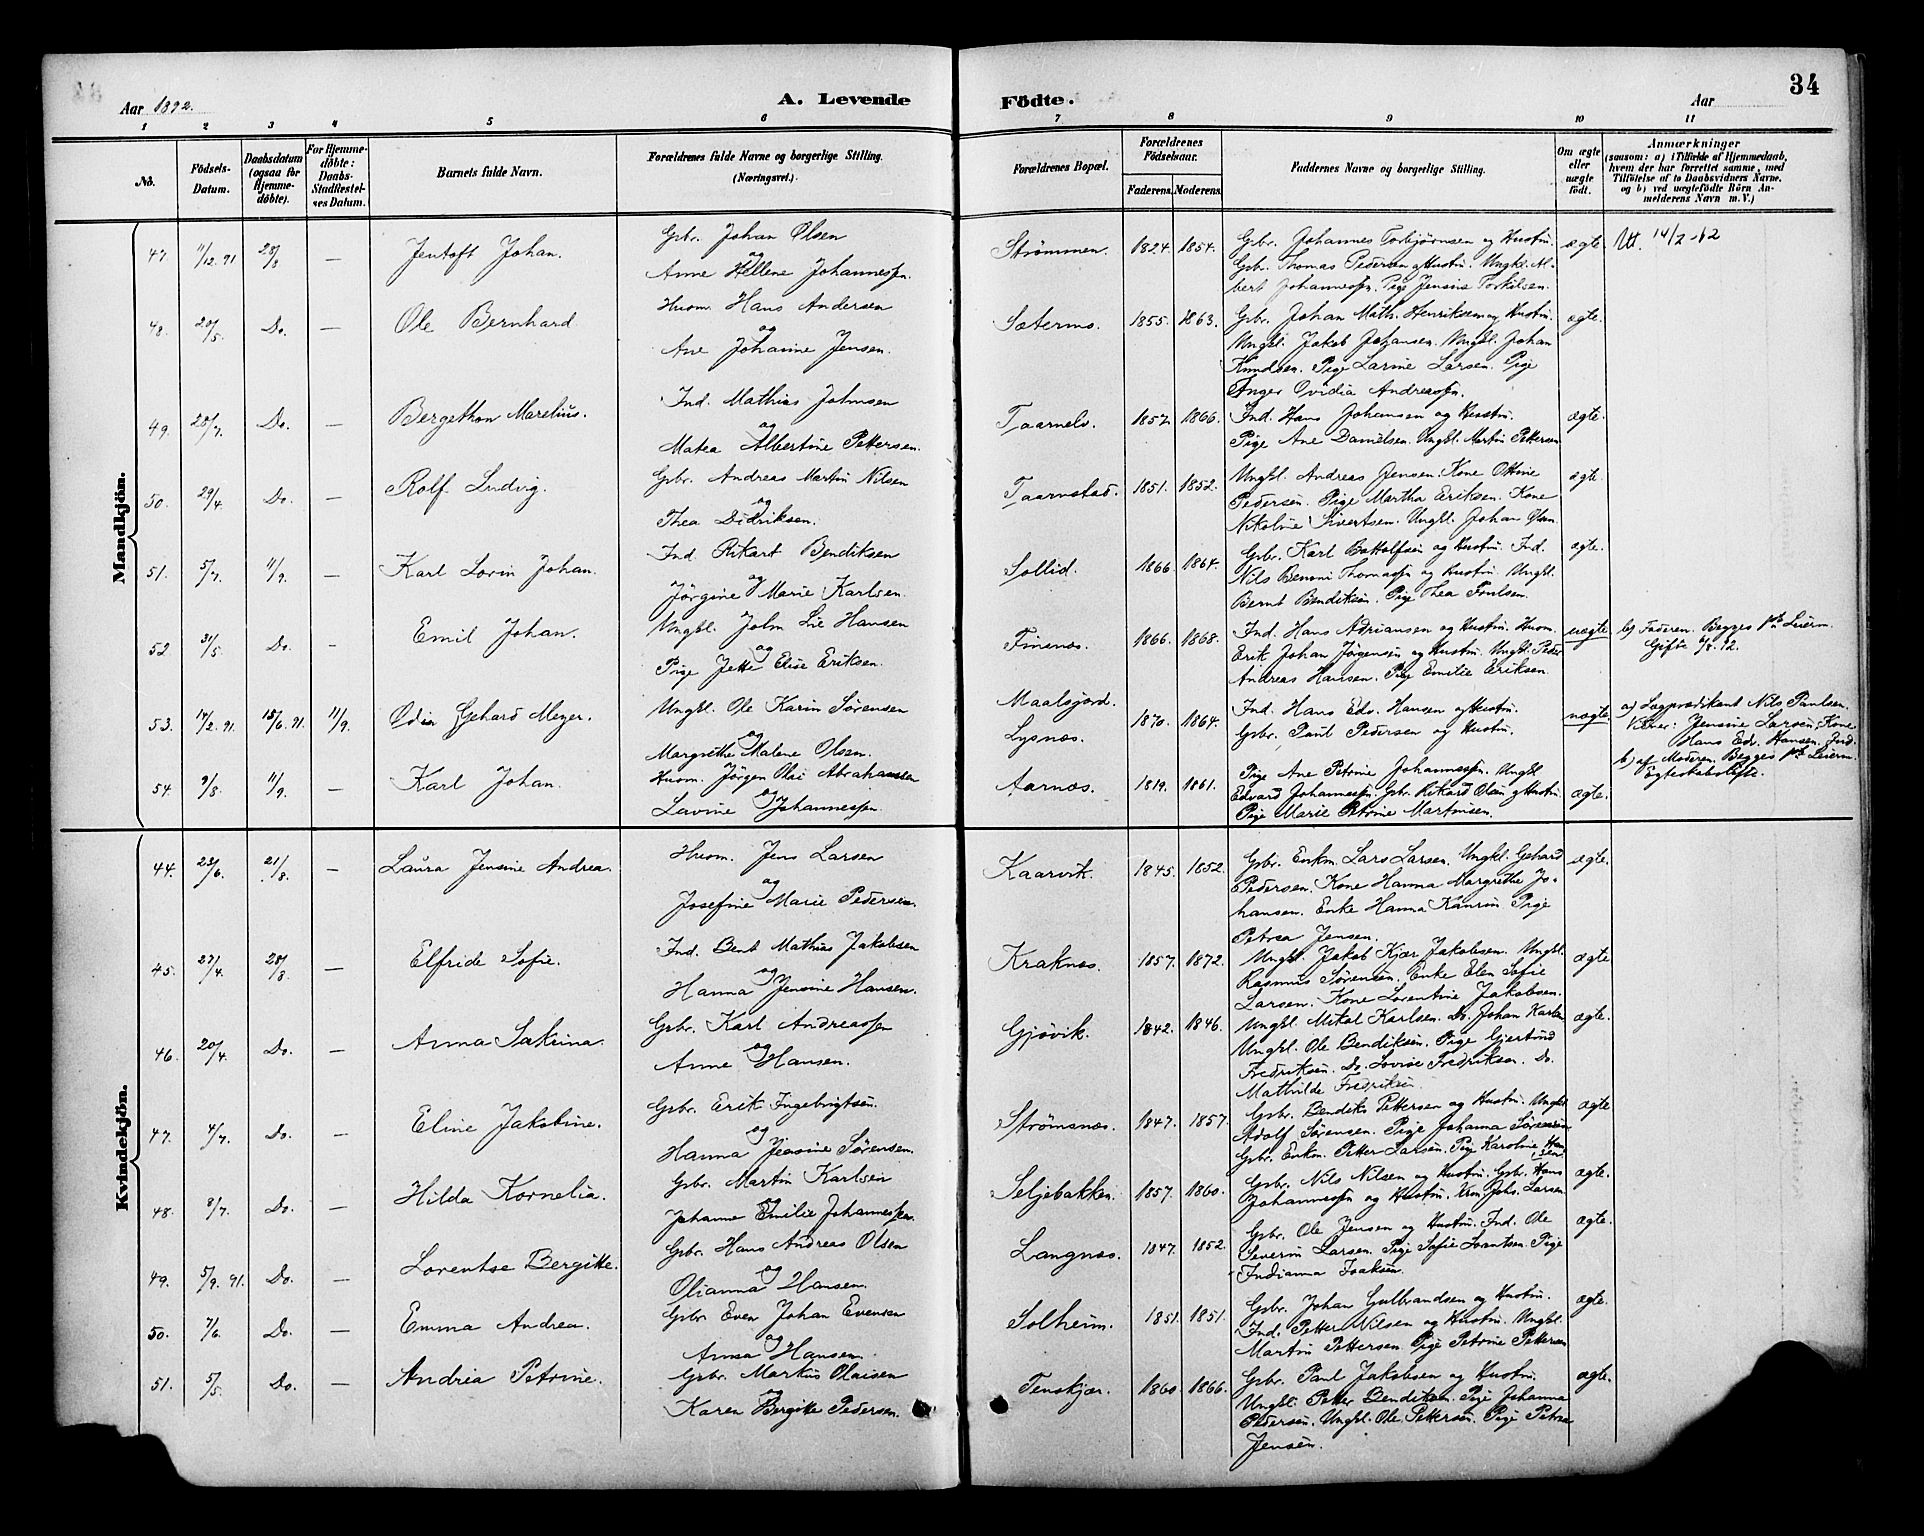 34
Aar 1892. A. Levende Födte. Aar
1 2 3 4 5 6 7 8 9 10 11
No.
Födsels-Datum.
Daabsdatum (ogsaa for Hjemmedöbte).
For Hjemmedöbte: Daabs-Stadfæstelses Datum.
Barnets fulde Navn.
Forældrenes fulde Navne og borgerlige Stilling. (Næringsvei.)
Forældrenes Bopæl.
Forældrenes Födselsaar.
Faderens. Moderens.
Faddernes Navne og borgerlige Stilling.
Om ægte eller uægte födt.
Anmærkninger
(saasom: a) i Tilfælde af Hjemmedaab, hvem der har forrettet samme, med Tilföielse af to Daabsvidners Navne, og b) ved uægtefödte Börn Anmelderens Navn m. V.)
Mandkjön.
47. 11/12.91 28/8 — Jentoft Johan. Gbr. Johan Olsen og Anne Hellene Johannessen. Strömmen. 1824. 1854. Gbr. Johannes Torbjörnsen og Hustru. Gbr. Thomas Pedersen og Hustru. Ungkl. Albert Johannessen. Pige Jensine Torkilsen. ægte. Utt. 14/2-12
48. 20/5 Do. — Ole Bernhard. Husm. Hans Andersen og Ane Johanne Jensen. Sætermo. 1855. 1863. Gbr. Johan Math. Henriksen og Hustru. Ungkl. Jakob Johansen. Ungkl. Johan Knudsen. Pige Larine Larsen. Pige Inger Ovidia Andreassen. ægte.
49. 28/7. Do. — Bergethon Marelius. Ind. Mathias Johnsen og Matea Albertine Pettersen. Taarnelv. 1857. 1866. Ind. Hans Johansen og Hustru. Pige Ane Danielsen. Ungkl. Martin Pettersen ægte.
50. 29/4. Do. — Rolf Ludvig. Gbr. Andreas Martin Nilsen og Thea Didriksen. Taarnstad. 1851. 1852. Ungkl. Andreas Jensen. Kone Ottine Pedersen. Pige Martha Eriksen. Kone Nikoline Sivertsen. Ungkl. Johan Olsen. ægte.
51. 5/7. 11/9. — Karl Lorin Johan. Ind. Rikart Bendiksen og Jörgine Marie Karlsen. Sollid. 1866. 1864. Gbr. Karl Bottolfsen og Hustru. Ind. Nils Benoni Thomassen og Hustru. Ungkl. Bernt Bendiksen. Pige Thea Poulsen. ægte.
52 31/5. Do. — Emil Johan. Ungkl. John Lie Hansen og Pige Jette Elise Eriksen. Finsnæs. 1866. 1868. Ind. Hans Adriansen og Hustru. Husm. Erik Johan Jörgensen og Hustru. Ungkl. Peder Andreas Hansen. Pige Emilie Eriksen. uægte b) Faderen. Begges 1ste Leierm. Gifte 6/8. 92.
53. 17/2.91. 15/6.91. 11/9. Odin Gehard Meyer. Ungkl. Ole Karin Sörensen og Margrethe Malene Olsen. Maalsfjord. Lysnæs. 1870. 1864. Ind. Hans Edv. Hansen og Hustru. Gbr. Paul Pedersen og Hustru. uægte a) Lægprædikant Nils Paulsen. Vidner: Jensine Larsen, Kone Hans Edv. Hansen, Ind. b) af Moderen. Begges 1ste Leierm. Egteskabslöfte.
54. 9/8. 11/9. — Karl Johan. Husm. Jörgen Olai Abrahamsen og Lavine Johannessen. Aarnæs. 1819. 1861. Pige Ane Petrine Johannessen. Ungkl. Edvard Johannessen. Gbr. Rikard Olsen og Hustru. Pige Marie Petrine Martinsen. ægte.
Kvindekjön.
44. 23/6. 21/8. — Laura Jensine Andrea. Husm. Jens Larsen og Josefine Marie Pedersen. Kaarvik. 1845. 1852. Gbr. Enkm. Lars Larsen. Ungkl. Gehard Pedersen. Kone Hanna Margrethe Johansen. Enke Hanna Kanrin. Pige Petrea Jensen. ægte.
45. 27/4. 28/8. — Elfride Sofie. Ind. Bent Mathias Jakobsen og Hanna Jensine Hansen. Kraknæs. 1857. 1872. Ungkl. Jakob Kjær Jakobsen. Ungkl. Rasmus Sörensen. Enke Elen Sofie Larsen. Kone Lorentine Jakobsen. ægte
46. 20/4. Do. — Anna Sakrina. Gbr. Karl Andreassen og Anne Hansen. Gjövik. 1842. 1846. Ungkl. Mikal Karlsen. Do. Johan Karlsen Ungkl. Ole Bendiksen. Pige Gjertrud Fredriksen. Do. Lovise Fredriksen. Do. Mathilde Fredriksen. ægte.
47. 4/7. Do. — Eline Jakobine. Gbr. Erik Ingebrigtsen. og Hanna Jensine Sörensen. Strömsnæs. 1847. 1857. Gbr. Bendiks Pettersen og Hustru. Ungkl. Adolf Sörensen. Pige Johanna Sörensen Gbr. Enkm. Petter Larsen. Pige Karoline Hansen ægte
48. 8/7. Do. — Hilda Kornelia. Gbr. Martin Karlsen og Johanne Emilie Johannessen. Seljebakken. 1857. 1860. Gbr. Nils Nilsen og Hustru. Gbr. Hans Johannessen og Hustru. Johs. Larsen ægte.
49. 5/9. 91. Do. — Lorentse Bergitte. Gbr. Hans Andreas Olsen og Olianna Hansen. Langnæs. 1847. 1852. Gbr. Ole Jensen og Hustru. Ind. Ole Severin Larsen. Pige Sofie Lorentsen. Pige Indianna Isaksen. ægte.
50. 7/6. Do. — Emma Andrea. Gbr. Even Johan Evensen og Anna Hansen. Solheim. 1851. 1851. Gbr. Johan Gulbrandsen og Hustru. Ind. Petter Nilsen og Hustru. Ungkl. Martin Pettersen. Pige Petrine Pettersen ægte.
51. 5/5. Do. — Andrea Petrine. Gbr. Markus Olaisen og Karen Bergitte Pedersen. Tenskjær. 1860. 1866. Gbr. Paul Jakobsen og Hustru. Ungkl. Petter Bendiksen. Pige Johanna Pedersen. Ungkl. Ole Pettersen. Pige Petra Jensen. ægte.